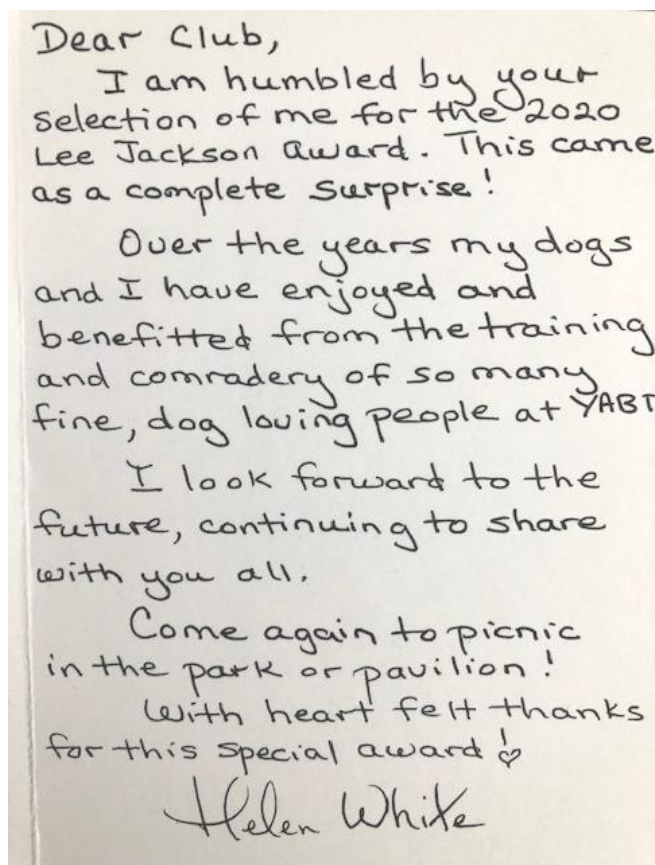 Dear Club,
I am humbled by your
selection of me for the 2020
Lee Jackson award. This came
as a complete surprise!
Over the years my dogs
and I have enjoyed and
benefitted from the training
and comradery of so many
fine, dog loving people at YABT
I look forward to the
future, continuing to share
with you all.
Come again to picnic
in the park or pavilion!
With heart felt thanks
for this special award!♡
Helen White